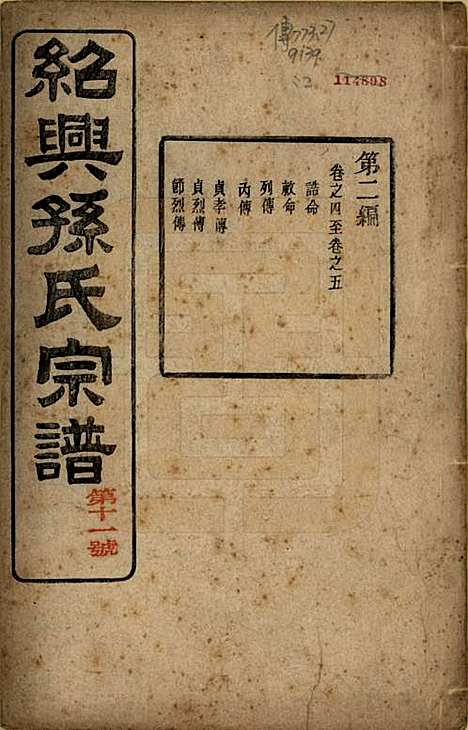 傳773.27
9139
:2
114898
第二編
卷之四至卷之五
誥命
敕命
列傳
內傳
貞孝傳
貞烈傳
節烈傳
紹興孫氏宗譜
第十一號